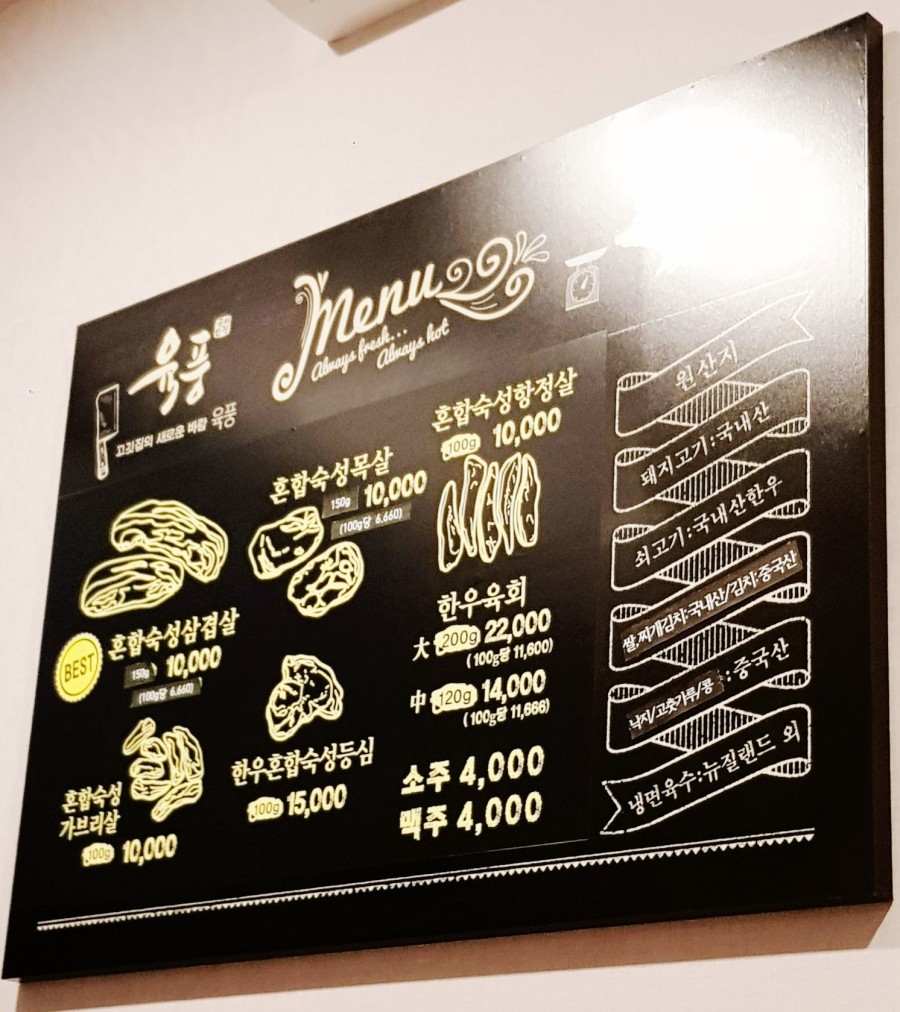 육풍
고깃집의 새로운 바람 육풍
Menu
Always fresh...
Always hot
BEST
혼합숙성삼겹살
150g 10,000
(100g당 6.660)
혼합숙성
가브리살
100g 10,000
혼합숙성목살
150g 10,000
(100g당 6.660)
한우혼합숙성등심
100g 15,000
혼합숙성항정살
100g 10,000
한우육회
大 200g 22,000
(100g당 11,600)
中 120g 14,000
(100g당 11,666)
소주 4,000
맥주 4,000
원산지
돼지고기:국내산
쇠고기:국내산한우
쌀,찌개김치:국내산/김치:중국산
낙지/고춧가루/콩 :중국산
냉면육수:뉴질랜드 외